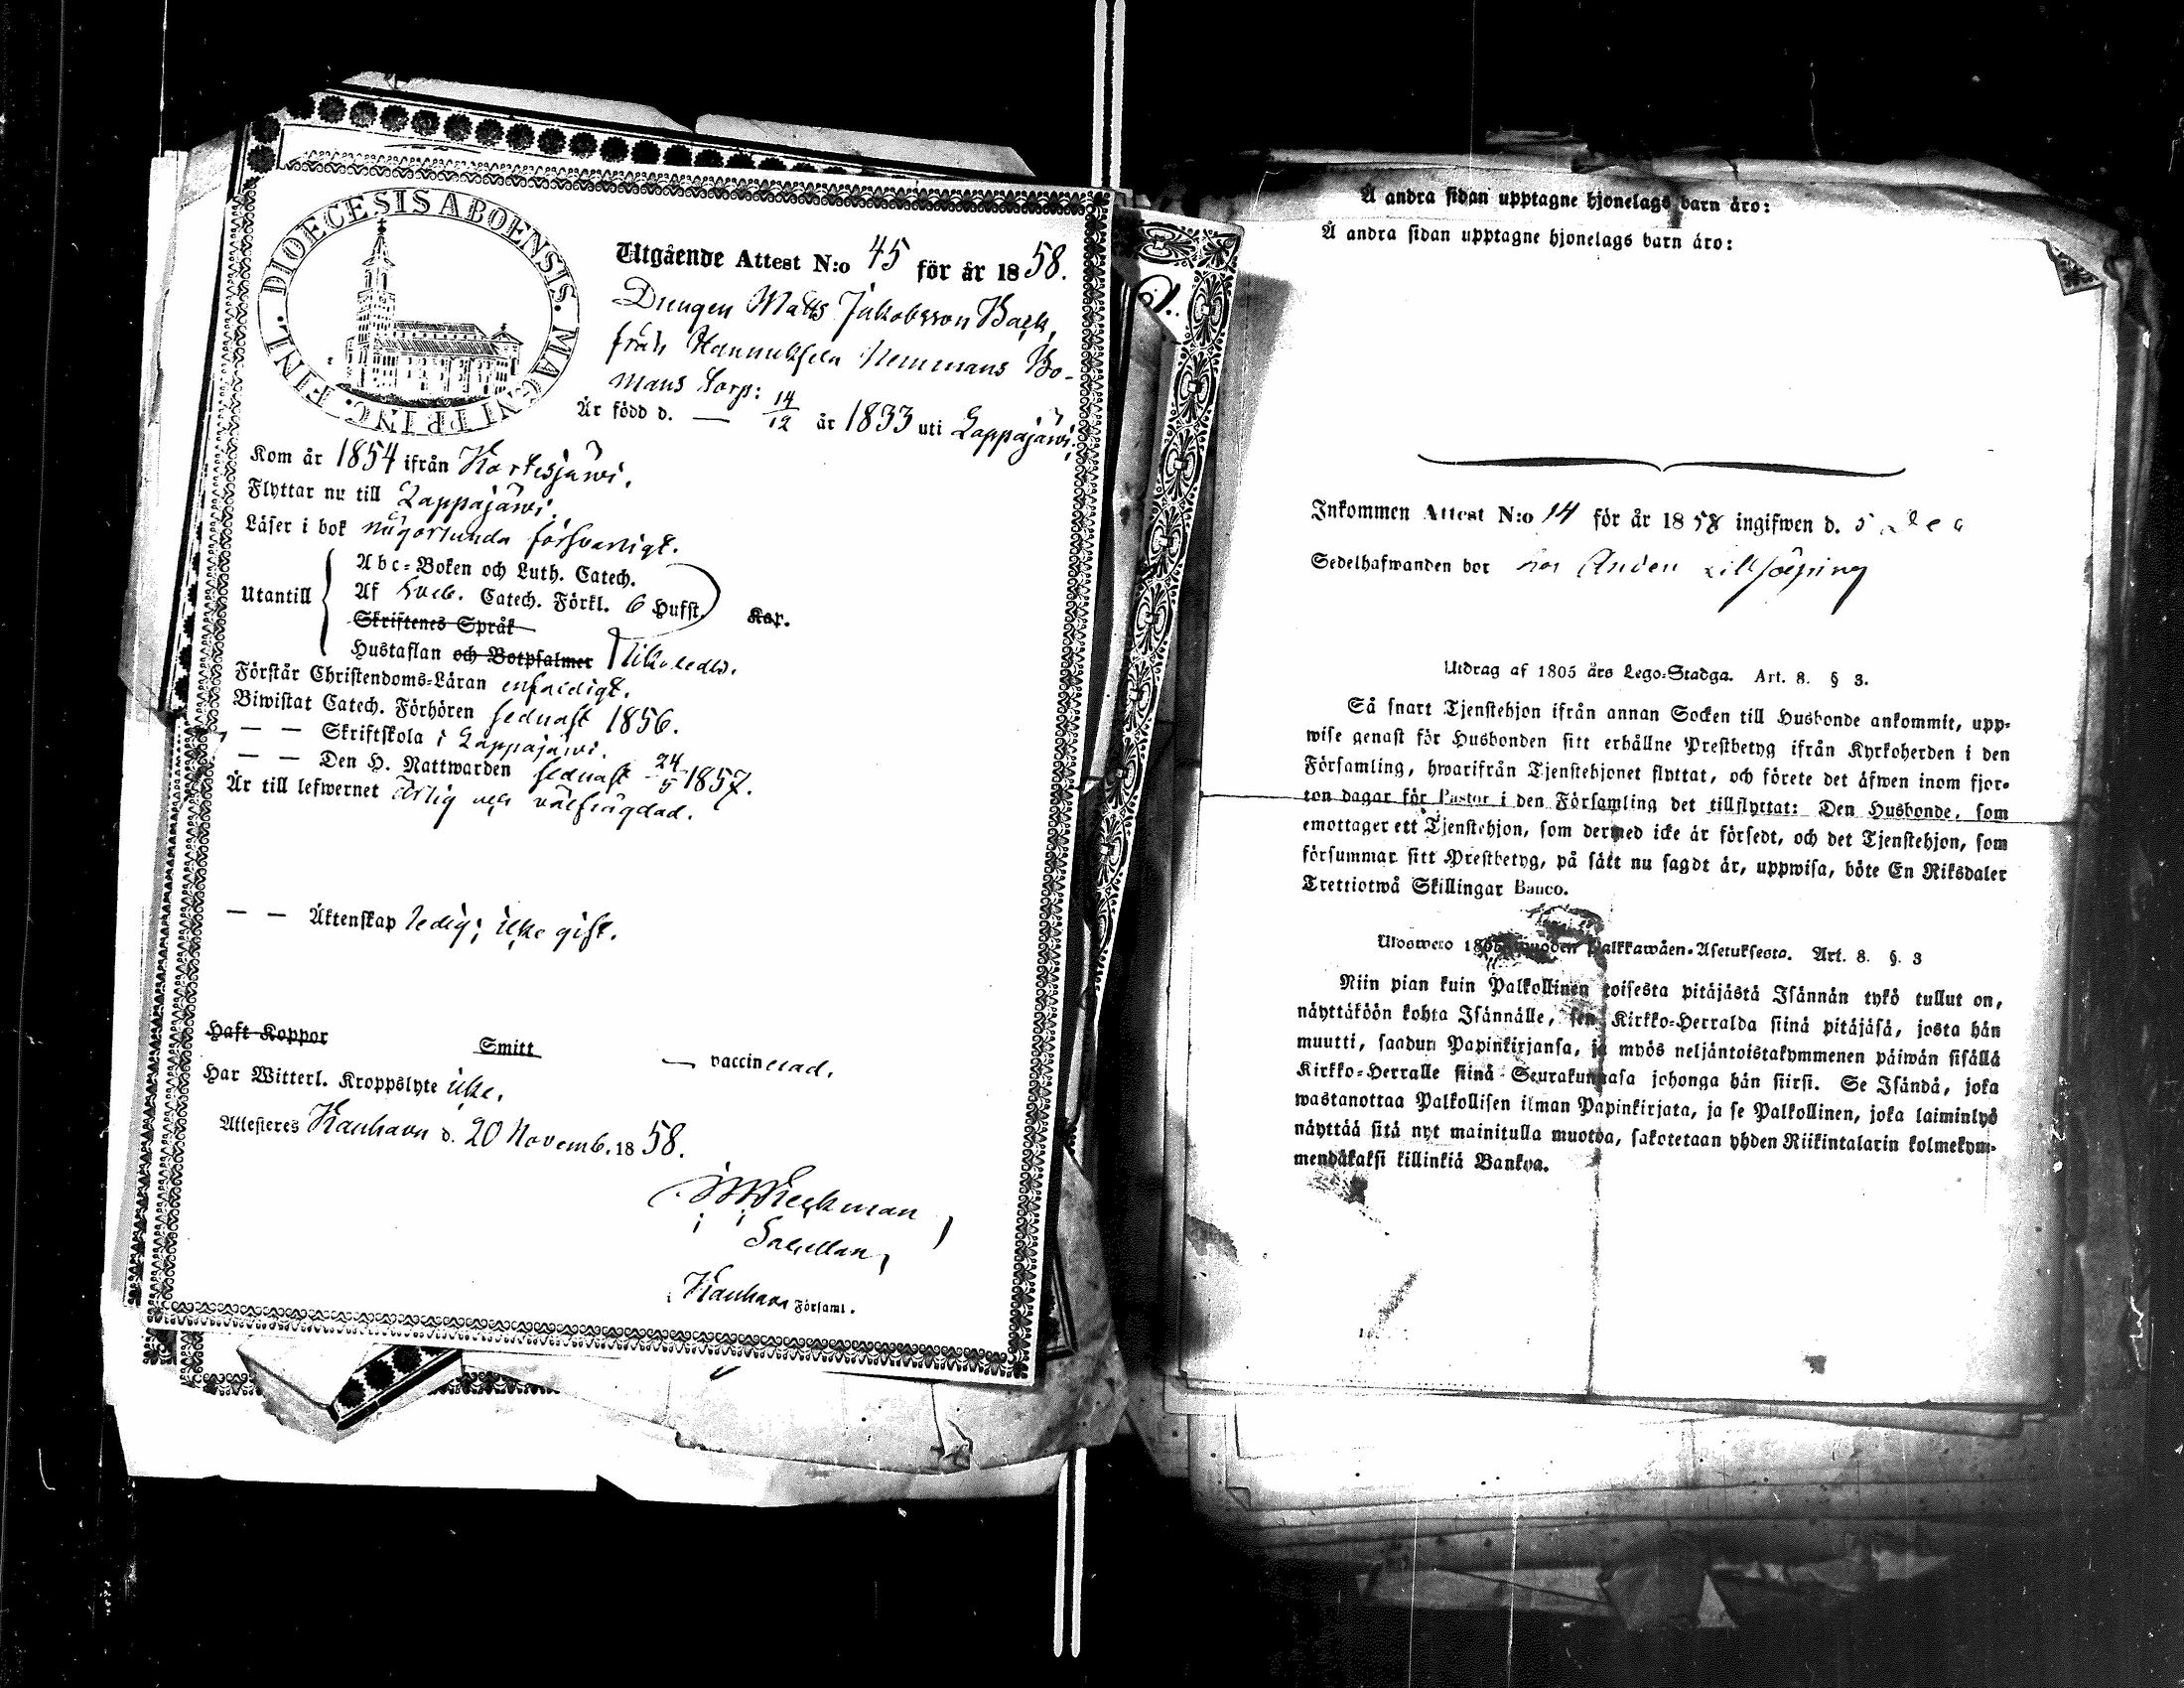 DIOECESIS ABOENSIS. MAGNI PRINC. FINL.
Utgående Attest N:o 45 för år 1858.
Drengen Matts Jakobsson Back,
från Hannuksela Hemmans Bo-
mans Torp:
Är född d. — 14/12 år 1833 uti Lappajärvi.
Kom år 1854 ifrån Kortesjärvi.
Flyttar nu till Lappajärvi.
Läser i bok någorlunda försvarligt.
Utantill
Abc-Boken och Luth. Catech.
Af Sveb. Catech. Förkl. 6 Hufst.
Kap.
Skriftenes Språk
Hustaflan och Botpsalmer likaledes.
Förstår Christendoms-Läran enfaldigt.
Biwistat Catech. Förhören sednast 1856.
— — Skriftskola i Lappajärvi.
— — Den H. Nattwarden sednast 24/5 1857.
Är till lefwernet ärlig och välfrägdad.
— — Äktenskap ledig; icke gift.
Haft Koppor Smitt — vaccinerad.
Har Witterl. Kroppslyte icke.
Attesteres Kauhava d. 20 Novemb. 1858.
Sacellan,
Kauhava Församl.
Å andra sidan upptagne hjonelags barn äro:
Å andra sidan upptagne hjonelags barn äro:
Inkommen Attest N:o 14 för år 1858 ingifwen d. 5 Dec
Sedelhafwanden bor hos
Utdrag af 1805 års Lego-Stadga. Art. 8. § 3.
Så snart Tjenstehjon ifrån annan Socken till Husbonde ankommit, upp-
wise genast för Husbonden sitt erhållne Prestbetyg ifrån Kyrkoherden i den
Församling, hwarifrån Tjenstehjonet flyttat, och förete det äfwen inom fjor-
ton dagar för Pastor i den Församling det tillflyttat: Den Husbonde, som
emottager ett Tjenstehjon, som dermed icke är försedt, och det Tjenstehjon, som
försummar sitt Prestbetyg, på sätt nu sagdt är, uppwisa, böte En Riksdaler
Trettiotwå Skillingar Banco.
Uloswero 1805 wuoden Palkkawäen-Asetuksesta. Art. 8. §. 3
Niin pian kuin Palkollinen toisesta pitäjästä Isännän tykö tullut on,
näyttäköön kohta Isännälle, sen Kirkko-Herralda siinä pitäjäsä, josta hän
muutti, saadun Papinkirjansa, ja myös neljäntoistakymmenen päiwän sisällä
Kirkko-Herralle siinä Seurakunnasa johonga hän siirsi. Se Isändä, joka
wastanottaa Palkollisen ilman Papinkirjata, ja se Palkollinen, joka laiminlyö
näyttää sitä nyt mainitulla muotoa, sakotetaan yhden Riikintalarin kolmekym-
mendäkaksi killinkiä Bankoa.